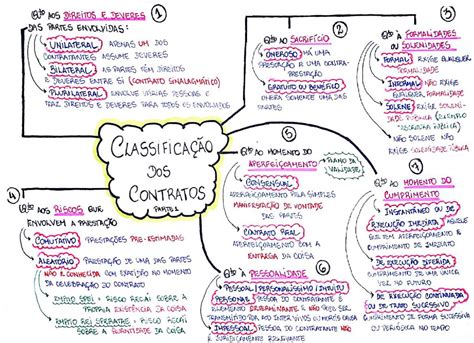 CLASSIFICAÇÃO
DOS
CONTRATOS
PARTE 1
1
Qto AOS DIREITOS E DEVERES
DAS PARTES ENVOLVIDAS:
UNILATERAL: APENAS UM DOS
CONTRATANTES ASSUME DEVERES
BILATERAL: AS PARTES TÊM DIREITOS
E DEVERES ENTRE SI (CONTRATO SINALAGMÁTICO)
PLURILATERAL: ENVOLVE VÁRIAS PESSOAS E
TRAZ DIREITOS E DEVERES PARA TODOS OS ENVOLVIDOS
2
Qto AO SACRIFÍCIO
ONEROSO: HÁ UMA
PRESTAÇÃO E UMA CONTRA-
PRESTAÇÃO
GRATUITO OU BENÉFICO
ONERA SOMENTE UMA DAS
PARTES
3
Qto À FORMALIDADES
OU SOLENIDADES
FORMAL: EXIGE QUALQUER
FORMALIDADE
INFORMAL: NÃO EXIGE
QUALQUER FORMALIDADE
SOLENE: EXIGE SOLENI-
DADE PÚBLICA (EXEMPLO
ESCRITURA PÚBLICA)
NÃO SOLENE: NÃO
EXIGE SOLENIDADE PÚBLICA
4
Qto AOS RISCOS QUE
ENVOLVEM A PRESTAÇÃO
COMUTATIVO: PRESTAÇÕES PRÉ-ESTIMADAS
ALEATÓRIO: PRESTAÇÃO DE UMA DAS PARTES
NÃO É CONHECIDA COM EXATIDÃO NO MOMENTO
DA CELEBRAÇÃO DO CONTRATO
EMPTIO SPEI: RISCO RECAI SOBRE A
PRÓPRIA EXISTÊNCIA DA COISA
EMPTIO REI SPERATAE: RISCO RECAI SOBRE
A QUANTIDADE DA COISA
5
Qto AO MOMENTO DO
APERFEIÇOAMENTO
PLANO DA
VALIDADE
CONSENSUAL
APERFEIÇOAMENTO PELA SIMPLES
MANIFESTAÇÃO DE VONTADE
DAS PARTES
CONTRATO REAL
APERFEIÇOAMENTO COM A
ENTREGA DA COISA
6
Qto À PESSOALIDADE
PESSOAL/PERSONALÍSSIMO/INTUITU
PERSONAE: PESSOA DO CONTRATANTE É
ELEMENTO DETERMINANTE E NÃO PODE SER
TRANSMITIDA POR ATO INTERVIVOS OU MORTIS CAUSA
IMPESSOAL: PESSOA DO CONTRATANTE NÃO
É JURIDICAMENTE RELEVANTE
7
Qto AO MOMENTO DO
CUMPRIMENTO
INSTANTÂNEO OU DE
EXECUÇÃO IMEDIATA: AQUELE
QUE TEM APERFEIÇOAMENTO E
CUMPRIMENTO DE IMEDIATO
DE EXECUÇÃO DIFERIDA
CUMPRIMENTO DE UMA
ÚNICA VEZ NO FUTURO
DE EXECUÇÃO CONTINUADA
OU DE TRATO SUCESSIVO
CUMPRIMENTO
DE FORMA SUCESSIVA OU
PERIÓDICA NO TEMPO